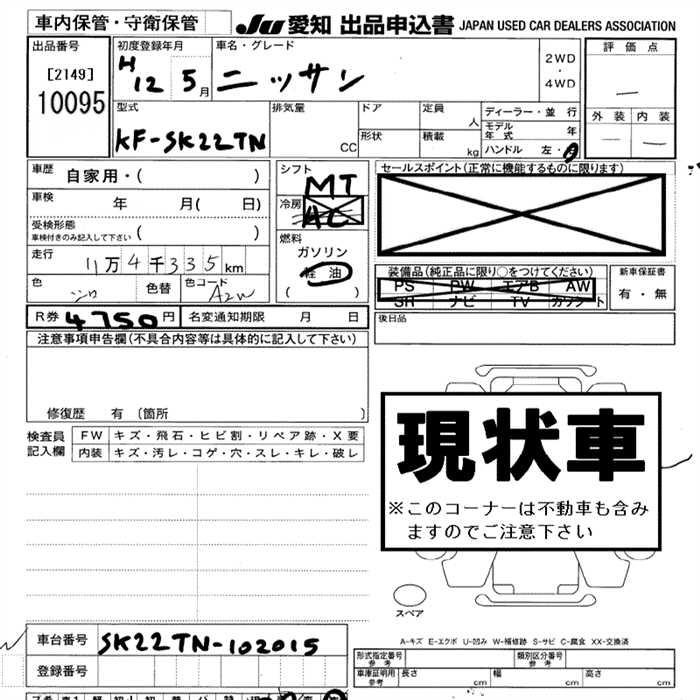 車内保管・守衛保管
JU 愛知 出品申込書 JAPAN USED CAR DEALERS ASSOCIATION
出品番号
[2149]
10095
初度登録年月
H 12 5月
車名・グレード
ニッサン
2WD
・
4WD
評価点
外装 内装
型式
KF-SK22TN
排気量
CC
ドア
形状
定員
人
積載
kg
ディーラー・並行
モデル年式 年
ハンドル 左・
車歴 自家用・( )
車検 年 月( 日)
受検形態
車検付きのみ記入して下さい ( )
走行 11万4千335km
色 シロ 色替 色コード
R券 4750円 名変通知期限 月 日
シフト
MT
冷房
AC
燃料
ガソリン
軽油
( )
セールスポイント(正常に機能するものに限ります)
装備品(純正品に限り○をつけてください)
PS PW エアB AW
SR ナビ TV カワシート
新車保証書
有・無
後日品
注意事項申告欄(不具合内容等は具体的に記入して下さい)
修復歴 有 (箇所 )
検査員記入欄
FW キズ・飛石・ヒビ割・リペア跡・X要
内装 キズ・汚レ・コゲ・穴・スレ・キレ・破レ
現状車
※このコーナーは不動車も含み
ますのでご注意下さい
スペア
A-キズ E-エクボ U-凹み W-補修跡 S-サビ C-腐食 XX-交換済
車台番号 SK22TN-102015
登録番号
形式指定番号 参考
類別区分番号 参考
車庫証明用 参考 長さ cm 幅 cm 高さ cm